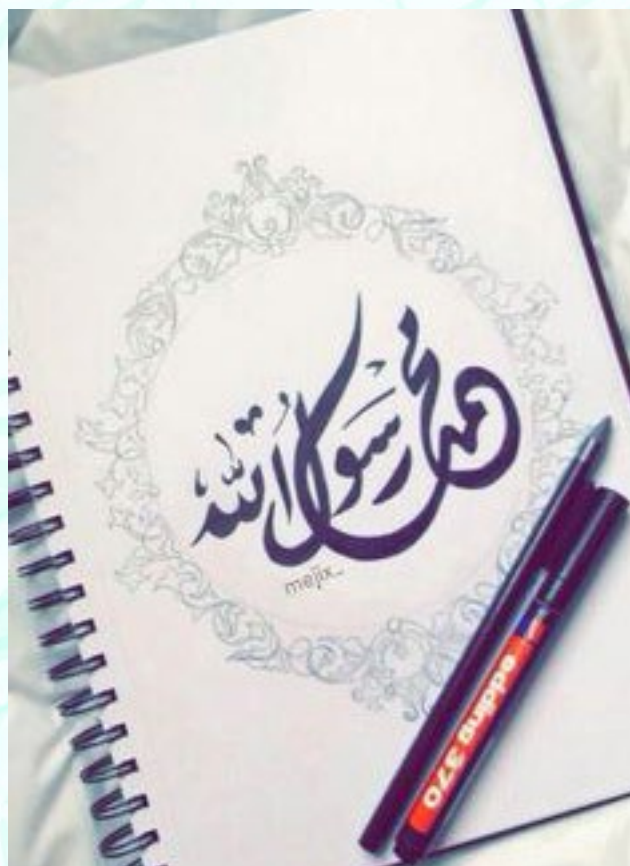 محمد رسول الله
mejix_
edding 370